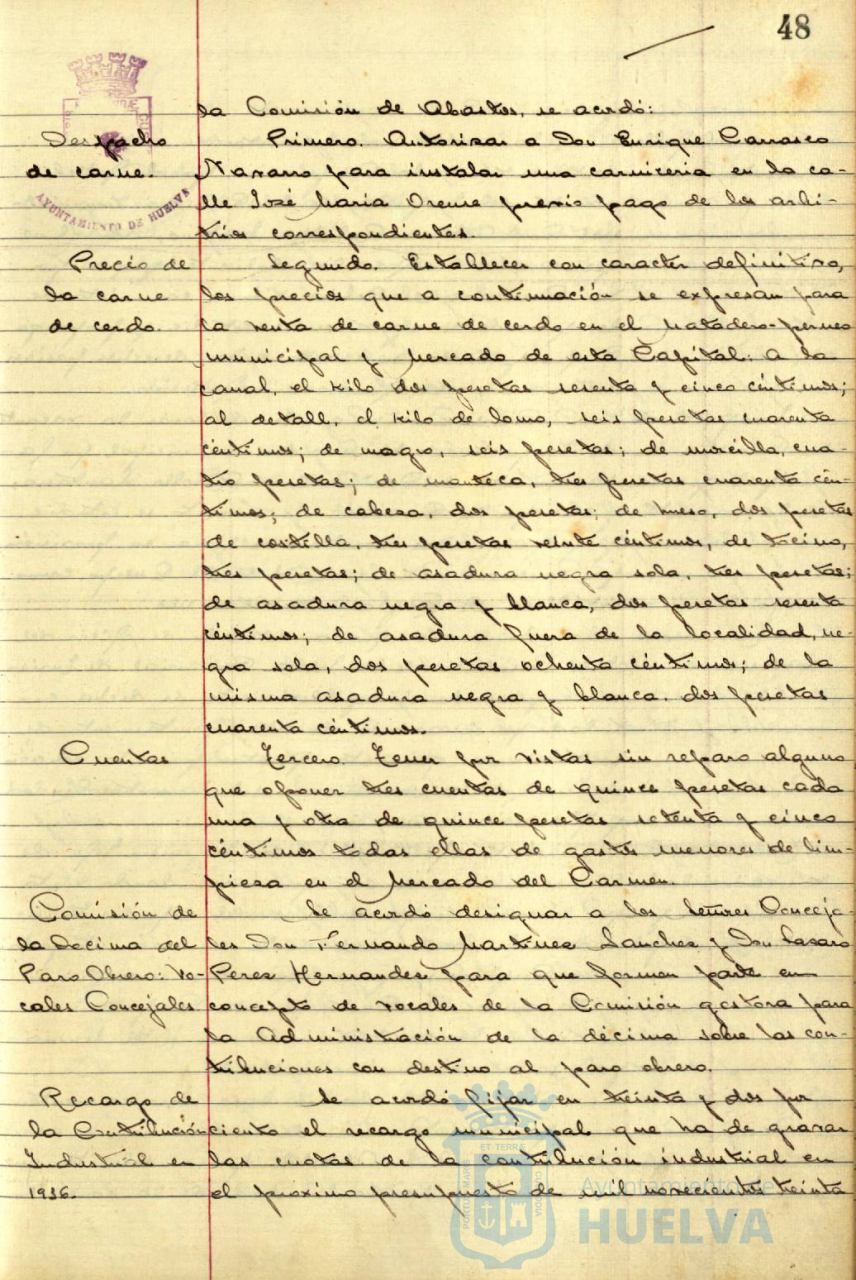 48
la Comisión de Abastos, se acordó:
Despacho
de carne.
Primero. Autorizar a Don Enrique Carrasco
Navarro para instalar una carniceria en la ca-
lle José Maria Orense previo pago de los arbi-
trios correspondientes.
AYUNTAMIENTO DE HUELVA
Precio de
la carne
de cerdo.
Segundo. Establecer con caracter definitivo,
los precios que a continuación se expresan para
la venta de carne de cerdo en el Matadero-permeo
municipal y Mercado de esta Capital: a la
canal, el kilo dos pesetas sesenta y cinco céntimos;
al detall, el kilo de lomo, seis pesetas cuarenta
céntimos; de magro, seis pesetas; de morcilla, cua-
tro pesetas; de manteca, tres pesetas cuarenta cén-
timos; de cabeza, dos pesetas; de hueso, dos pesetas
de costilla, tres pesetas veinte céntimos, de tocino,
tres pesetas; de asadura negra sola, tres pesetas;
de asadura negra y blanca, dos pesetas sesenta
céntimos; de asadura fuera de la localidad, ne-
gra sola, dos pesetas ochenta céntimos; de la
misma asadura negra y blanca. dos pesetas
cuarenta céntimos.
Cuentas
Tercero. Tener por vistas sin reparo alguno
que oponer tres cuentas de quince pesetas cada
una y otra de quince pesetas setenta y cinco
céntimos todas ellas de gastos menores de lim-
pieza en el Mercado del Carmen.
Comisión de
la Decima del
Paro Obrero: Vo-
cales Concejales.
Se acordó designar a los Señores Conceja-
les Don Fernando Martinez Sanchez y Don Lazaro
Perez Hernandez para que formen parte en
concepto de vocales de la Comisión gestora para
la Administración de la décima sobre las con-
tribuciones con destino al paro obrero.
Recargo de
la Contribución
Industrial en
1936.
Se acordó fijar en treinta y dos por
ciento el recargo municipal que ha de gravar
las cuotas de la contribución industrial en
el próximo presupuesto de mil novecientos treinta
Ayuntamiento de
HUELVA